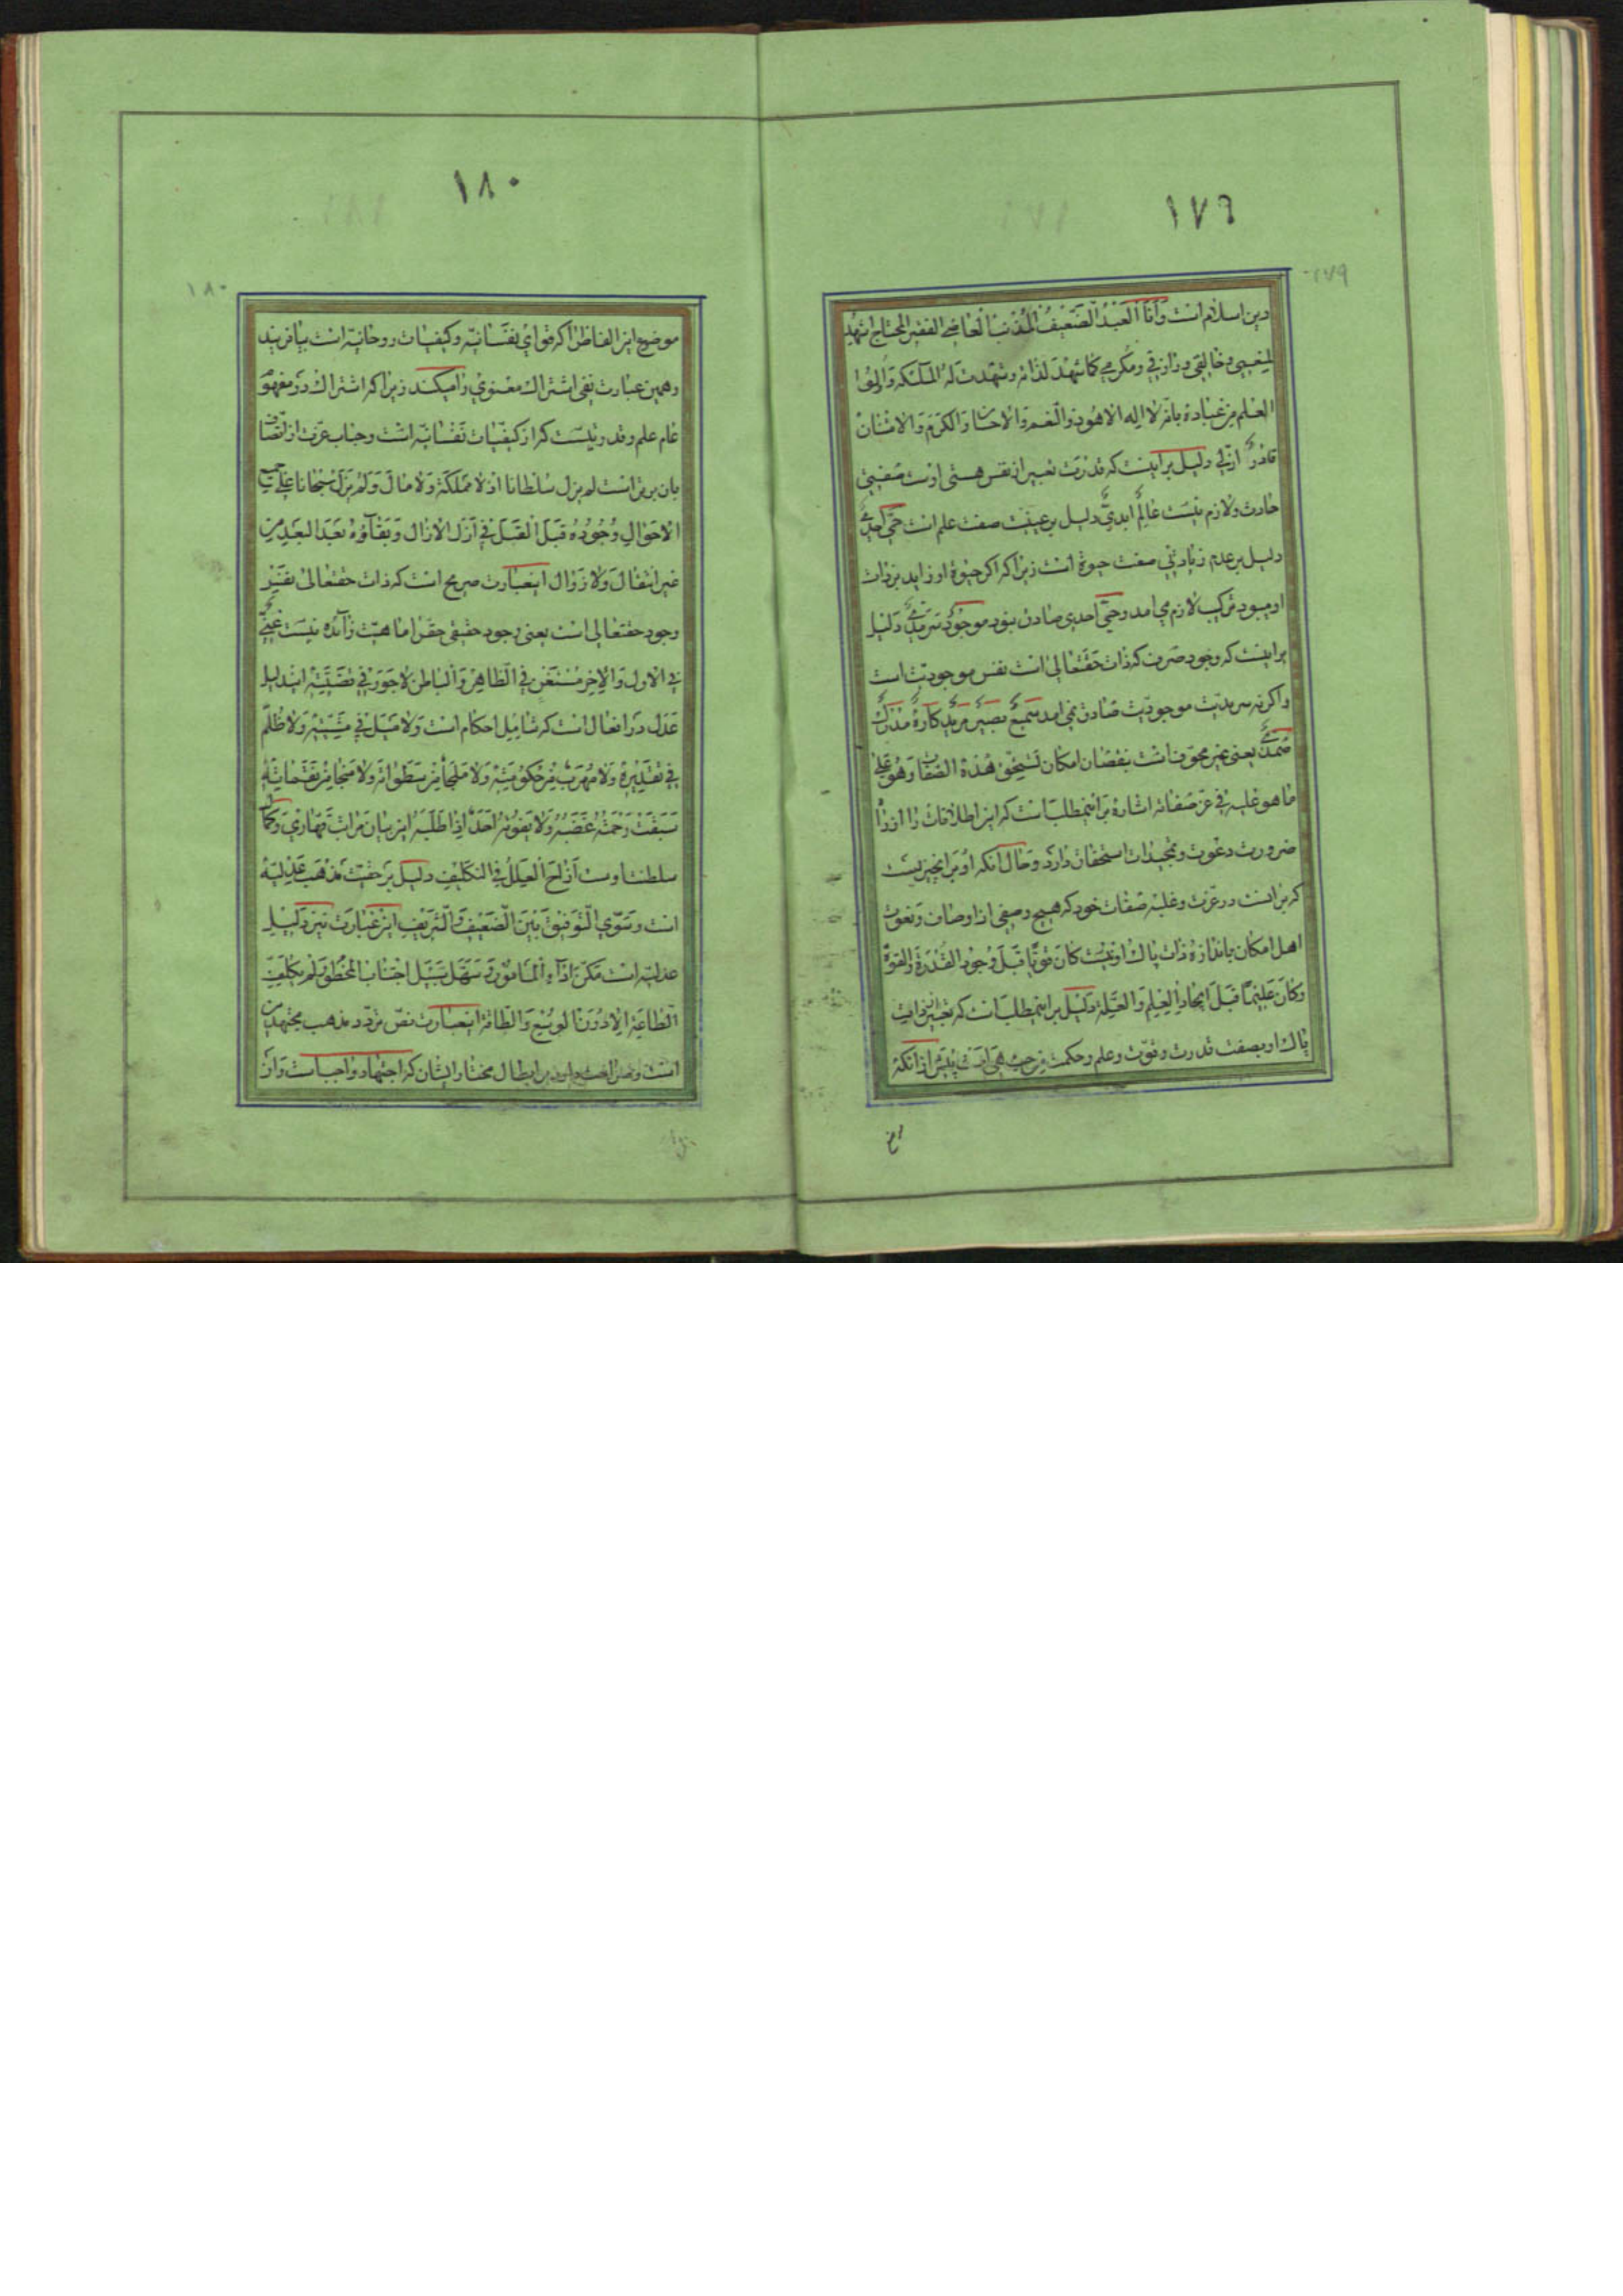 ١٧٦
١٧٩
دین اسلام است وَاَنَا الْعَبْدُ الضَّعِیْفُ الْمُذْنِبُ الْعَاصِی الفقیر المحتاج اشهد
لمنعمی وخالقی ورازقی ومکرمی کما شهد لذاته وشهدت له الملائکه واولوا
العلم من عباده بانّه لا اله الا هو ذو النعم والاحسان والکرم والامتنان
قادرٌ ازلی دلیل بر اینست که قدرت تعبیر از نفس هستی اوست صفتی
حادث ولازم نیست عالمٌ ابدیٌّ دلیل بر عینیت صفت علم است حیٌّ احدیٌّ
دلیل بر عدم زیادتی صفت حیوة است زیرا که اکر حیوة او زاید بر ذات
او میبود ترکیب لازم می امد وحیّ احدی صادق نبود موجودٌ سرمدیٌّ دلیل
بر اینست که وجود صرف که ذات حقتعالی است نفس موجودیت است
واکر نه سرمدیت موجودیت صادق نمی امد سمیعٌ بصیرٌ مریدٌ کارهٌ مدرکٌ
صمدیٌّ یعنی غیر مجوف است بنقصان امکان یستحق هذه الصفات وهو علی
ما هو علیه فی عزّ صفاته اشاره بر اینمطلب است که این اطلاقات را از راه
ضرورت دعوت وتمجیدات استحقاق دارد وحال آنکه او بر انچیزیست
که بر انست در عزت وغلبه صفات خود که هیچ وصفی از اوصاف ونعوت
اهل امکان باندازه ذات پاک او نیست کان قویّا قبل وجود القدرة والقوة
وکان علیما قبل ایجاد العلم والعلة دلیل بر اینمطلب است که تعبیر از ذات
پاک او بصفت قدرت وقوت وعلم وحکمت من حیث هی است پیش از انکه
١٨٠
١٨٠
موضوع این الفاظ را که قوای نفسانیه وکیفیات روحانیه است بیافریند
وهمین عبارت نفی اشتراک معنوی را میکند زیرا که اشتراک در مفهوم
عام علم وقدرتیست که از کیفیات نفسانیه است وجناب عزت از اتصاف
بان بریست لم یزل سلطانا اذ لا مملکة ولا مال ولم یزل سبحانا علی جمیع
الاحوال وجوده قبل القبل فی ازل الازال وبقاؤه بعد البعد من
غیر انتقال ولا زوال اینعبارت صریح است که ذات حقتعالی نفس
وجود حقتعالی است یعنی وجود حقیقی حقرا ماهیت زآئده نیست غنیٌّ
فی الاول والاخر مستغن فی الظاهر والباطن لا جور فی قضیته ایندلیل
عدل در افعال است که شامل احکام است ولا میل فی مشیته ولا ظلم
فی تقدیره ولا مهرب من حکومته ولا ملجأ من سطواته ولا منجا من نقماته
سبقت رحمته غضبه ولا یفوته احد اذا طلبه این بیان مراتب قهاری وکمال
سلطنت اوست ازاح العلل فی التکلیف دلیل بر حقیت مذهب عدلیه
است وسوّی التوفیق بین الضعیف والشریف این عبارت نیز دلیل
عدلیه است مکّن اداء المأمور وسهل سبیل اجتناب المحظور لم یکلف
الطاعة الا دون الوسع والطاقة اینعبارت نص بر ردّ مذهب مجتهدین
است ونص است بر ابطال مختار ایشان که اجتهاد واجب است وان